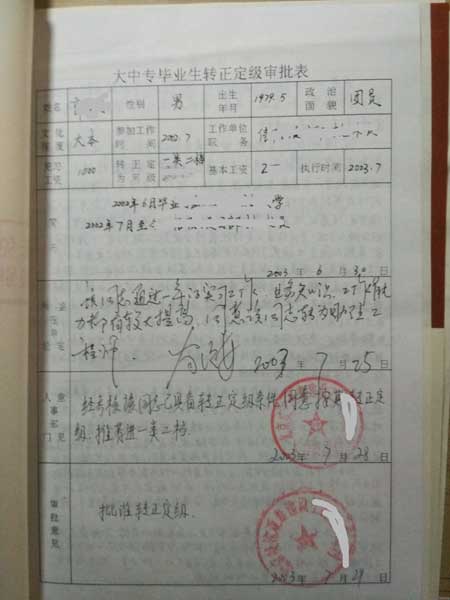 大中专毕业生转正定级审批表
姓名 性别 男 出生年月 1979.5 政治面貌 团员
文化程度 大本 参加工作时间 2002.7 工作单位职务
见习工资 转正定为或级 一类二档 基本工资 执行时间 2003.7
2002年6月毕业 学
2002年7月至
2003年6月30日
该同志通过一年的实习工作，业务知识、工作能
力都有较大提高，同意该同志转为助理工
程师。
2003年7月25日
人事部门意见
经考核该同志已具备转正定级条件，同意按期转正定
级，推荐进一类二档.
2003年7月28日
审批意见
批准转正定级.
2003年7月29日